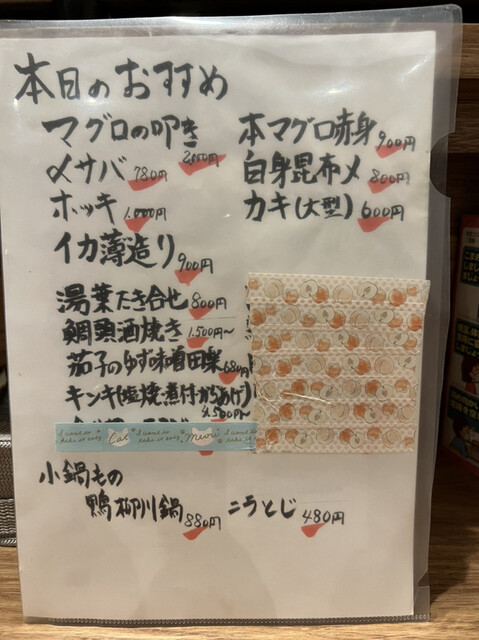 本日のおすすめ
マグロの叩き 2,000円
〆サバ 780円
ホッキ 1,000円
イカ薄造り 900円
本マグロ赤身 900円
白身昆布〆 800円
カキ(大型) 600円
湯葉たき合せ 800円
鯛兜酒焼き 1,500円〜
茄子のゆず味噌田楽 680円
キンキ(塩焼、煮付、からあげ)
4,500円〜
Cat
Meow
小鍋もの
鴨柳川鍋 880円
ニラとじ 480円